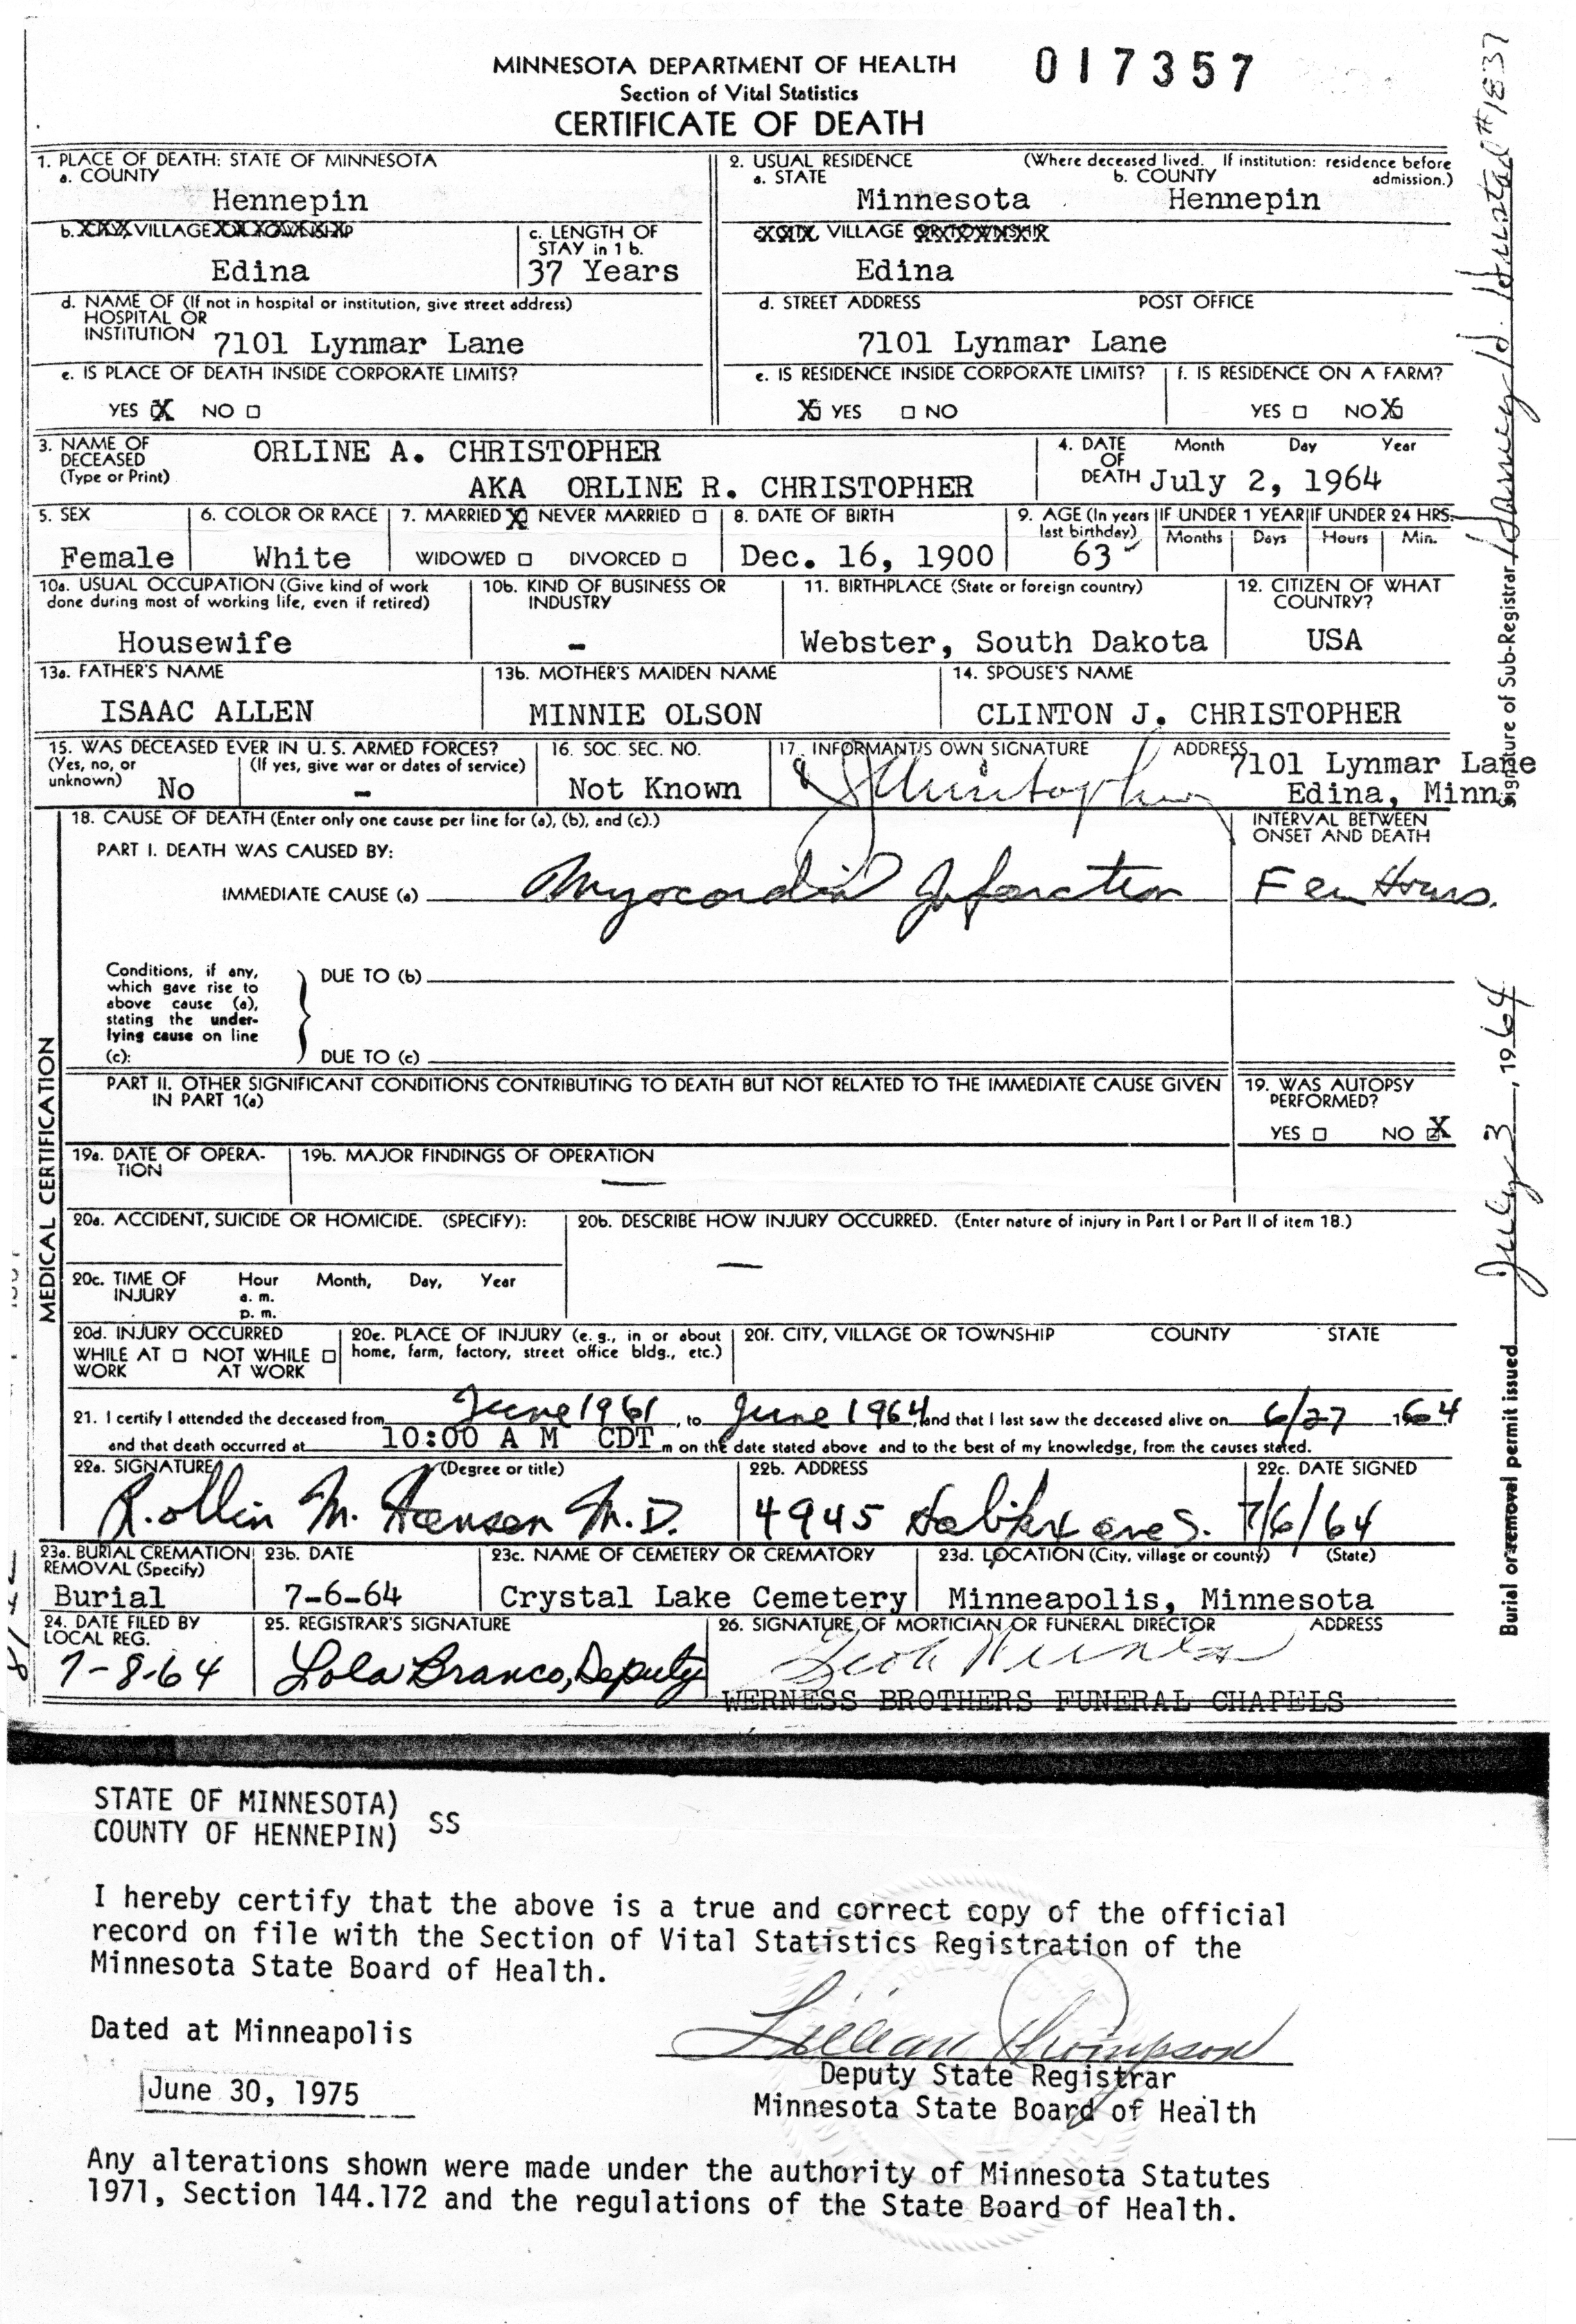 MINNESOTA DEPARTMENT OF HEALTH
017357
Section of Vital Statistics
CERTIFICATE OF DEATH
1. PLACE OF DEATH: STATE OF MINNESOTA
a. COUNTY
Hennepin
2. USUAL RESIDENCE (Where deceased lived. If institution: residence before admission.)
a. STATE b. COUNTY
Minnesota Hennepin
b. VILLAGE
Edina
c. LENGTH OF STAY in 1 b.
37 Years
VILLAGE
Edina
d. NAME OF (If not in hospital or institution, give street address)
HOSPITAL OR
INSTITUTION 7101 Lynmar Lane
d. STREET ADDRESS POST OFFICE
7101 Lynmar Lane
e. IS PLACE OF DEATH INSIDE CORPORATE LIMITS?
YES X NO
e. IS RESIDENCE INSIDE CORPORATE LIMITS?
X YES NO
f. IS RESIDENCE ON A FARM?
YES NO X
3. NAME OF DECEASED
(Type or Print)
ORLINE A. CHRISTOPHER
AKA ORLINE R. CHRISTOPHER
4. DATE OF DEATH Month Day Year
July 2, 1964
5. SEX
Female
6. COLOR OR RACE
White
7. MARRIED X NEVER MARRIED
WIDOWED DIVORCED
8. DATE OF BIRTH
Dec. 16, 1900
9. AGE (In years last birthday)
63
IF UNDER 1 YEAR
Months Days
IF UNDER 24 HRS.
Hours Min.
10a. USUAL OCCUPATION (Give kind of work
done during most of working life, even if retired)
Housewife
10b. KIND OF BUSINESS OR INDUSTRY
-
11. BIRTHPLACE (State or foreign country)
Webster, South Dakota
12. CITIZEN OF WHAT COUNTRY?
USA
13a. FATHER'S NAME
ISAAC ALLEN
13b. MOTHER'S MAIDEN NAME
MINNIE OLSON
14. SPOUSE'S NAME
CLINTON J. CHRISTOPHER
15. WAS DECEASED EVER IN U. S. ARMED FORCES?
(Yes, no, or unknown) (If yes, give war or dates of service)
No -
16. SOC. SEC. NO.
Not Known
17. INFORMANT'S OWN SIGNATURE ADDRESS
Christopher
7101 Lynmar Lane
Edina, Minn.
18. CAUSE OF DEATH (Enter only one cause per line for (a), (b), and (c).)
INTERVAL BETWEEN
ONSET AND DEATH
PART I. DEATH WAS CAUSED BY:
IMMEDIATE CAUSE (a) Myocardial Infarction
Few Hours.
Conditions, if any,
which gave rise to
above cause (a),
stating the under-
lying cause on line
(c):
DUE TO (b)
DUE TO (c)
PART II. OTHER SIGNIFICANT CONDITIONS CONTRIBUTING TO DEATH BUT NOT RELATED TO THE IMMEDIATE CAUSE GIVEN
IN PART 1(a)
19. WAS AUTOPSY
PERFORMED?
YES NO X
19a. DATE OF OPERA-
TION
19b. MAJOR FINDINGS OF OPERATION
—
20a. ACCIDENT, SUICIDE OR HOMICIDE. (SPECIFY):
20b. DESCRIBE HOW INJURY OCCURRED. (Enter nature of injury in Part I or Part II of item 18.)
—
20c. TIME OF INJURY Hour Month, Day, Year
a. m.
p. m.
20d. INJURY OCCURRED
WHILE AT WORK NOT WHILE AT WORK
20e. PLACE OF INJURY (e. g., in or about
home, farm, factory, street office bldg., etc.)
20f. CITY, VILLAGE OR TOWNSHIP COUNTY STATE
21. I certify I attended the deceased from June 1961, to June 1964, and that I last saw the deceased alive on 6/27 1964
and that death occurred at 10:00 A M CDT m on the date stated above and to the best of my knowledge, from the causes stated.
22a. SIGNATURE (Degree or title)
Rollin M. Hansen M.D.
22b. ADDRESS
4945 S.
22c. DATE SIGNED
7/6/64
23a. BURIAL CREMATION
REMOVAL (Specify)
Burial
23b. DATE
7-6-64
23c. NAME OF CEMETERY OR CREMATORY
Crystal Lake Cemetery
23d. LOCATION (City, village or county) (State)
Minneapolis, Minnesota
24. DATE FILED BY
LOCAL REG.
7-8-64
25. REGISTRAR'S SIGNATURE
Lola Branco, Deputy
26. SIGNATURE OF MORTICIAN OR FUNERAL DIRECTOR ADDRESS
WERNESS BROTHERS FUNERAL CHAPELS
MEDICAL CERTIFICATION
Signature of Sub-Registrar #1837
Burial or removal permit issued July 3, 1964
STATE OF MINNESOTA)
COUNTY OF HENNEPIN) SS
I hereby certify that the above is a true and correct copy of the official
record on file with the Section of Vital Statistics Registration of the
Minnesota State Board of Health.
Dated at Minneapolis
Lillian Thompson
Deputy State Registrar
June 30, 1975
Minnesota State Board of Health
Any alterations shown were made under the authority of Minnesota Statutes
1971, Section 144.172 and the regulations of the State Board of Health.